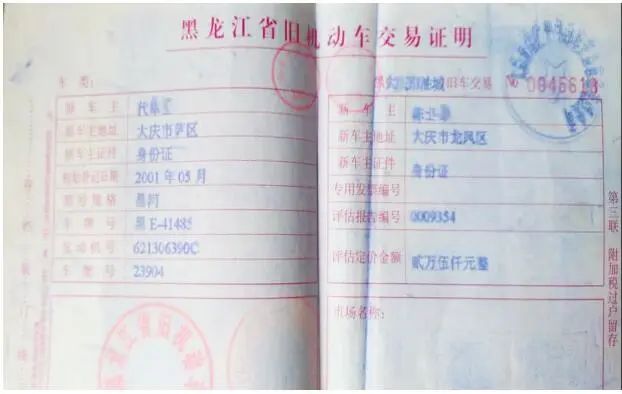 黑龙江省旧机动车交易证明
车类:
旧车交易 № 0045613
原车主
新车主
原车主地址 大庆市萨区
新车主地址 大庆市龙凤区
原车主证件 身份证
新车主证件 身份证
初始登记日期 2001年05月
专用发票编号
型号规格 昌河
车牌号 黑E-41485
评估报告编号 0009354
发动机号 621306390C
评估定价金额 贰万伍仟元整
车架号 23904
市场名称:
黑龙江省旧机动车
第三联 附加税过户留存